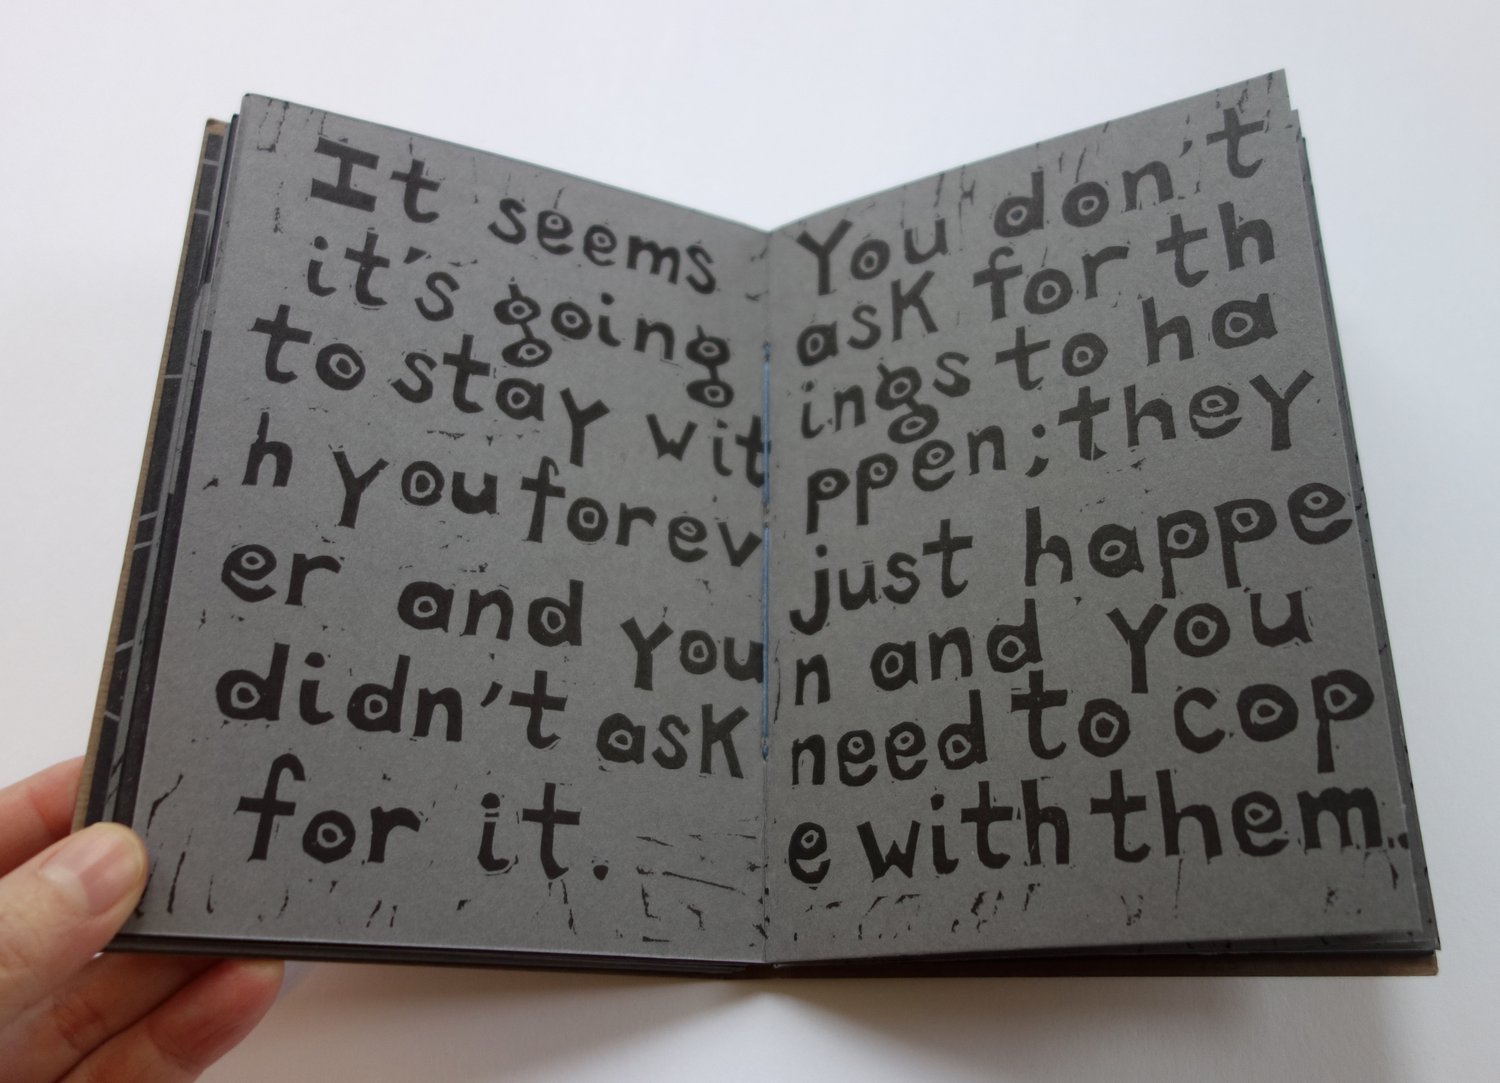 It seems
it's going
to stay wit
h you forev
er and you
didn't ask
for it.
You don't
ask for th
ings to ha
ppen; they
just happe
n and you
need to cop
e with them.